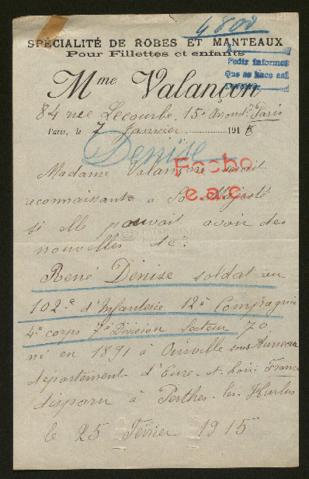 4800
SPÉCIALITÉ DE ROBES ET MANTEAUX
Pour Fillettes et enfants
Pedir informes
Que se hace así
Mme Valançon
84 rue Lecourbe. 15e Arront Paris
Paris, le 7 Janvier 191
Denise
Fecho
e.a.c.
Madame Valançon serait
reconnaissante à Sa Majesté
si elle pouvait avoir des
nouvelles de:
René Denise soldat au
102e d'Infanterie 12e Compagnie
4e corps 7e Division Secteur 70
né en 1891 à Oinville sous Auneau
département d'Eure-et-Loir France
disparu à Perthes-les-Hurlus
le 25 Février 1915